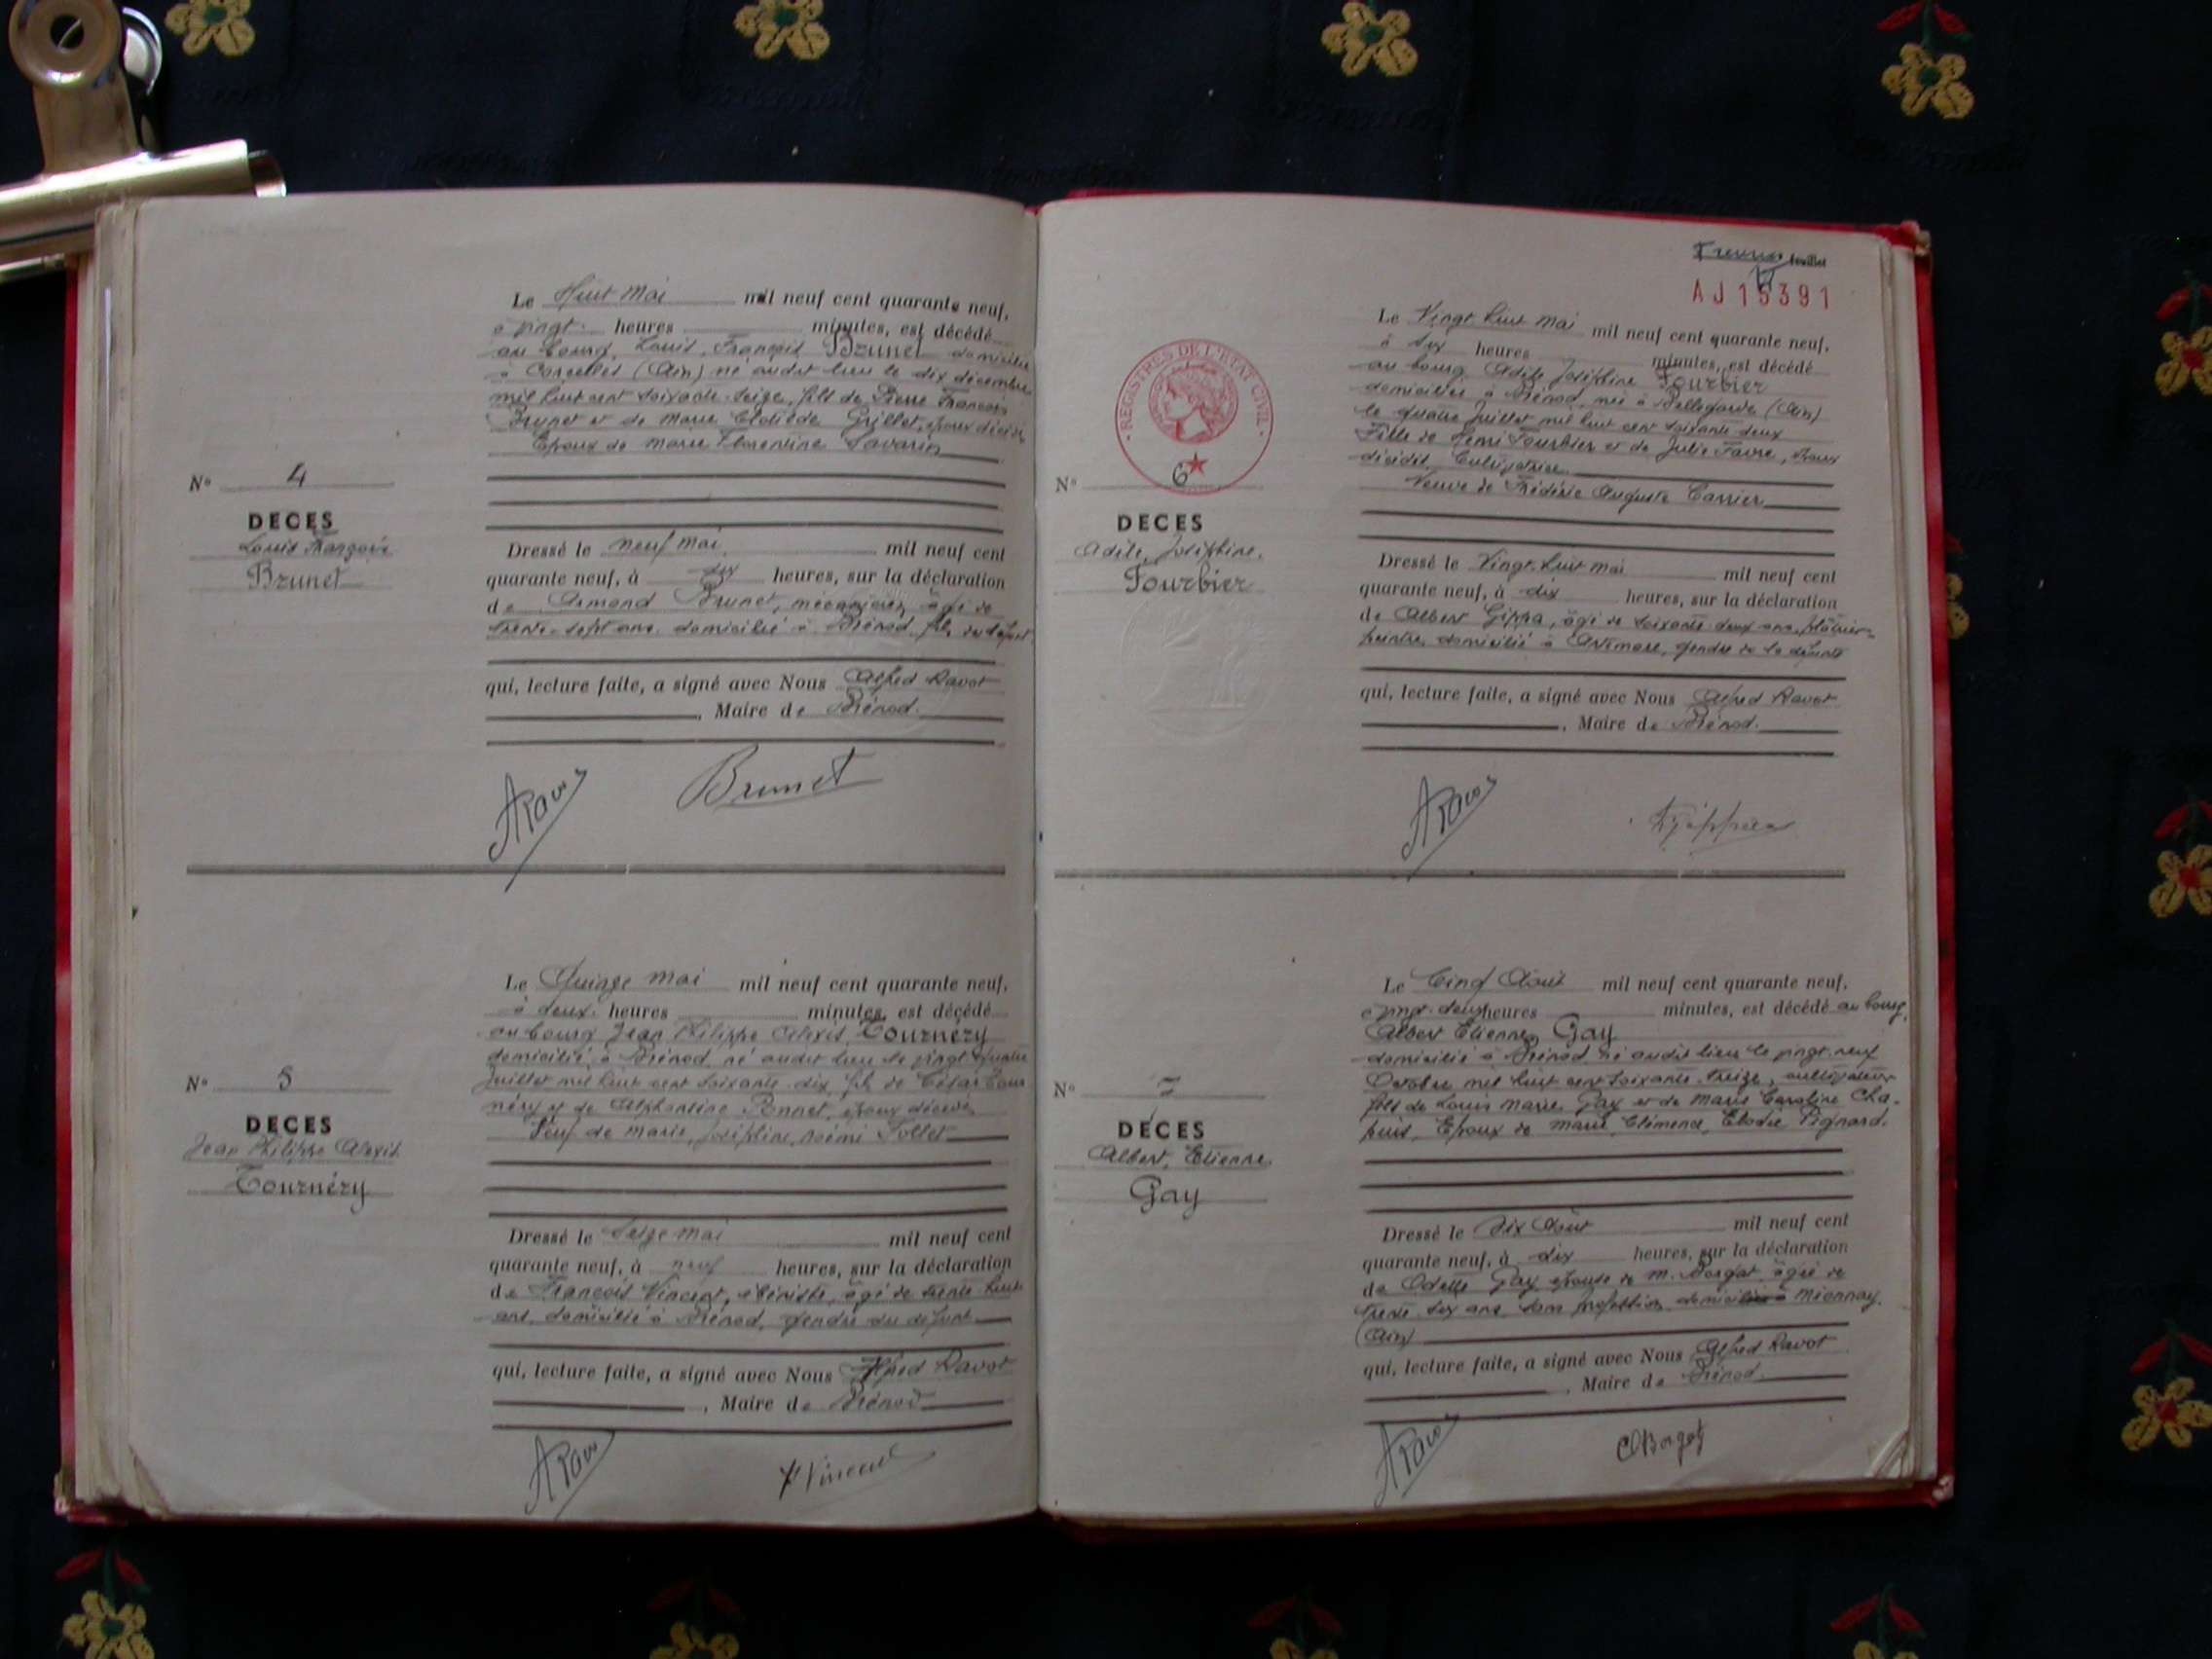 Le Huit Mai mil neuf cent quarante neuf,
à vingt heures minutes, est décédé
au bourg, Louis, François Brunet domicilié
à Corcelles (Ain) né audit lieu le dix décembre
mil huit cent soixante-seize, fils de Pierre François
Brunet et de Marie Clotilde Grillet, époux décédés
Epoux de Marie Florentine Savarin
N° 4
DECES
Louis François
Brunet
Dressé le neuf mai mil neuf cent
quarante neuf, à dix heures, sur la déclaration
de Armand Brunet, mécanicien, âgé de
trente-sept ans, domicilié à Brénod, fils du défunt
qui, lecture faite, a signé avec Nous Alfred Ravot
, Maire de Brénod.
ARavot
Brunet
Le Quinze mai mil neuf cent quarante neuf,
à deux heures minutes, est décédé
au bourg Jean Philippe Alexis Tournéry
domicilié à Brénod, né audit lieu le vingt quatre
Juillet mil huit cent soixante-dix, fils de César Tour
néry et de Alphonsine Bonnet, époux décédés
Veuf de Marie, Joséphine, Noémi Tollet
N° 5
DECES
Jean Philippe Alexis
Tournéry
Dressé le Seize mai mil neuf cent
quarante neuf, à neuf heures, sur la déclaration
de François Vincent, ébéniste, âgé de trente-huit
ans, domicilié à Brénod, gendre du défunt
qui, lecture faite, a signé avec Nous Alfred Ravot
, Maire de Brénod
ARavot
F Vincent
feuillet
AJ 15391
Le Vingt-huit Mai mil neuf cent quarante neuf,
à six heures minutes, est décédé
au bourg Adèle Joséphine Fourbier
domiciliée à Brénod, née à Bellegarde (Ain)
le quatre Juillet mil huit cent soixante deux
Fille de Henri Fourbier et de Julie Favre, époux
décédés, Cultivatrice
Veuve de Frédéric Auguste Carrier
REGISTRES DE L'ETAT CIVIL
N° 6
DECES
Adèle, Joséphine,
Fourbier
Dressé le Vingt-huit mai mil neuf cent
quarante neuf, à dix heures, sur la déclaration
de Albert Gippa, âgé de soixante-deux ans, plâtrier-
peintre, domicilié à Artemare, gendre de la défunte
qui, lecture faite, a signé avec Nous Alfred Ravot
, Maire de Brénod.
ARavot
Le Cinq Août mil neuf cent quarante neuf,
à vingt-deux heures minutes, est décédé au bourg,
Albert Etienne, Gay
domicilié à Brénod né audit lieu le vingt-neuf
Octobre mil huit cent soixante-treize, cultivateur
fils de Louis Marie Gay et de Marie Caroline Cha-
puis, Epoux de Marie, Clémence, Elodie Pignard.
N° 7
DECES
Albert, Etienne
Gay
Dressé le Six Août mil neuf cent
quarante neuf, à dix heures, sur la déclaration
de Odette Gay épouse de M. Borgat âgée de
trente-six ans, sans profession domiciliée à Mionnay.
(Ain)
qui, lecture faite, a signé avec Nous Alfred Ravot
, Maire de Brénod.
ARavot
OBorgat